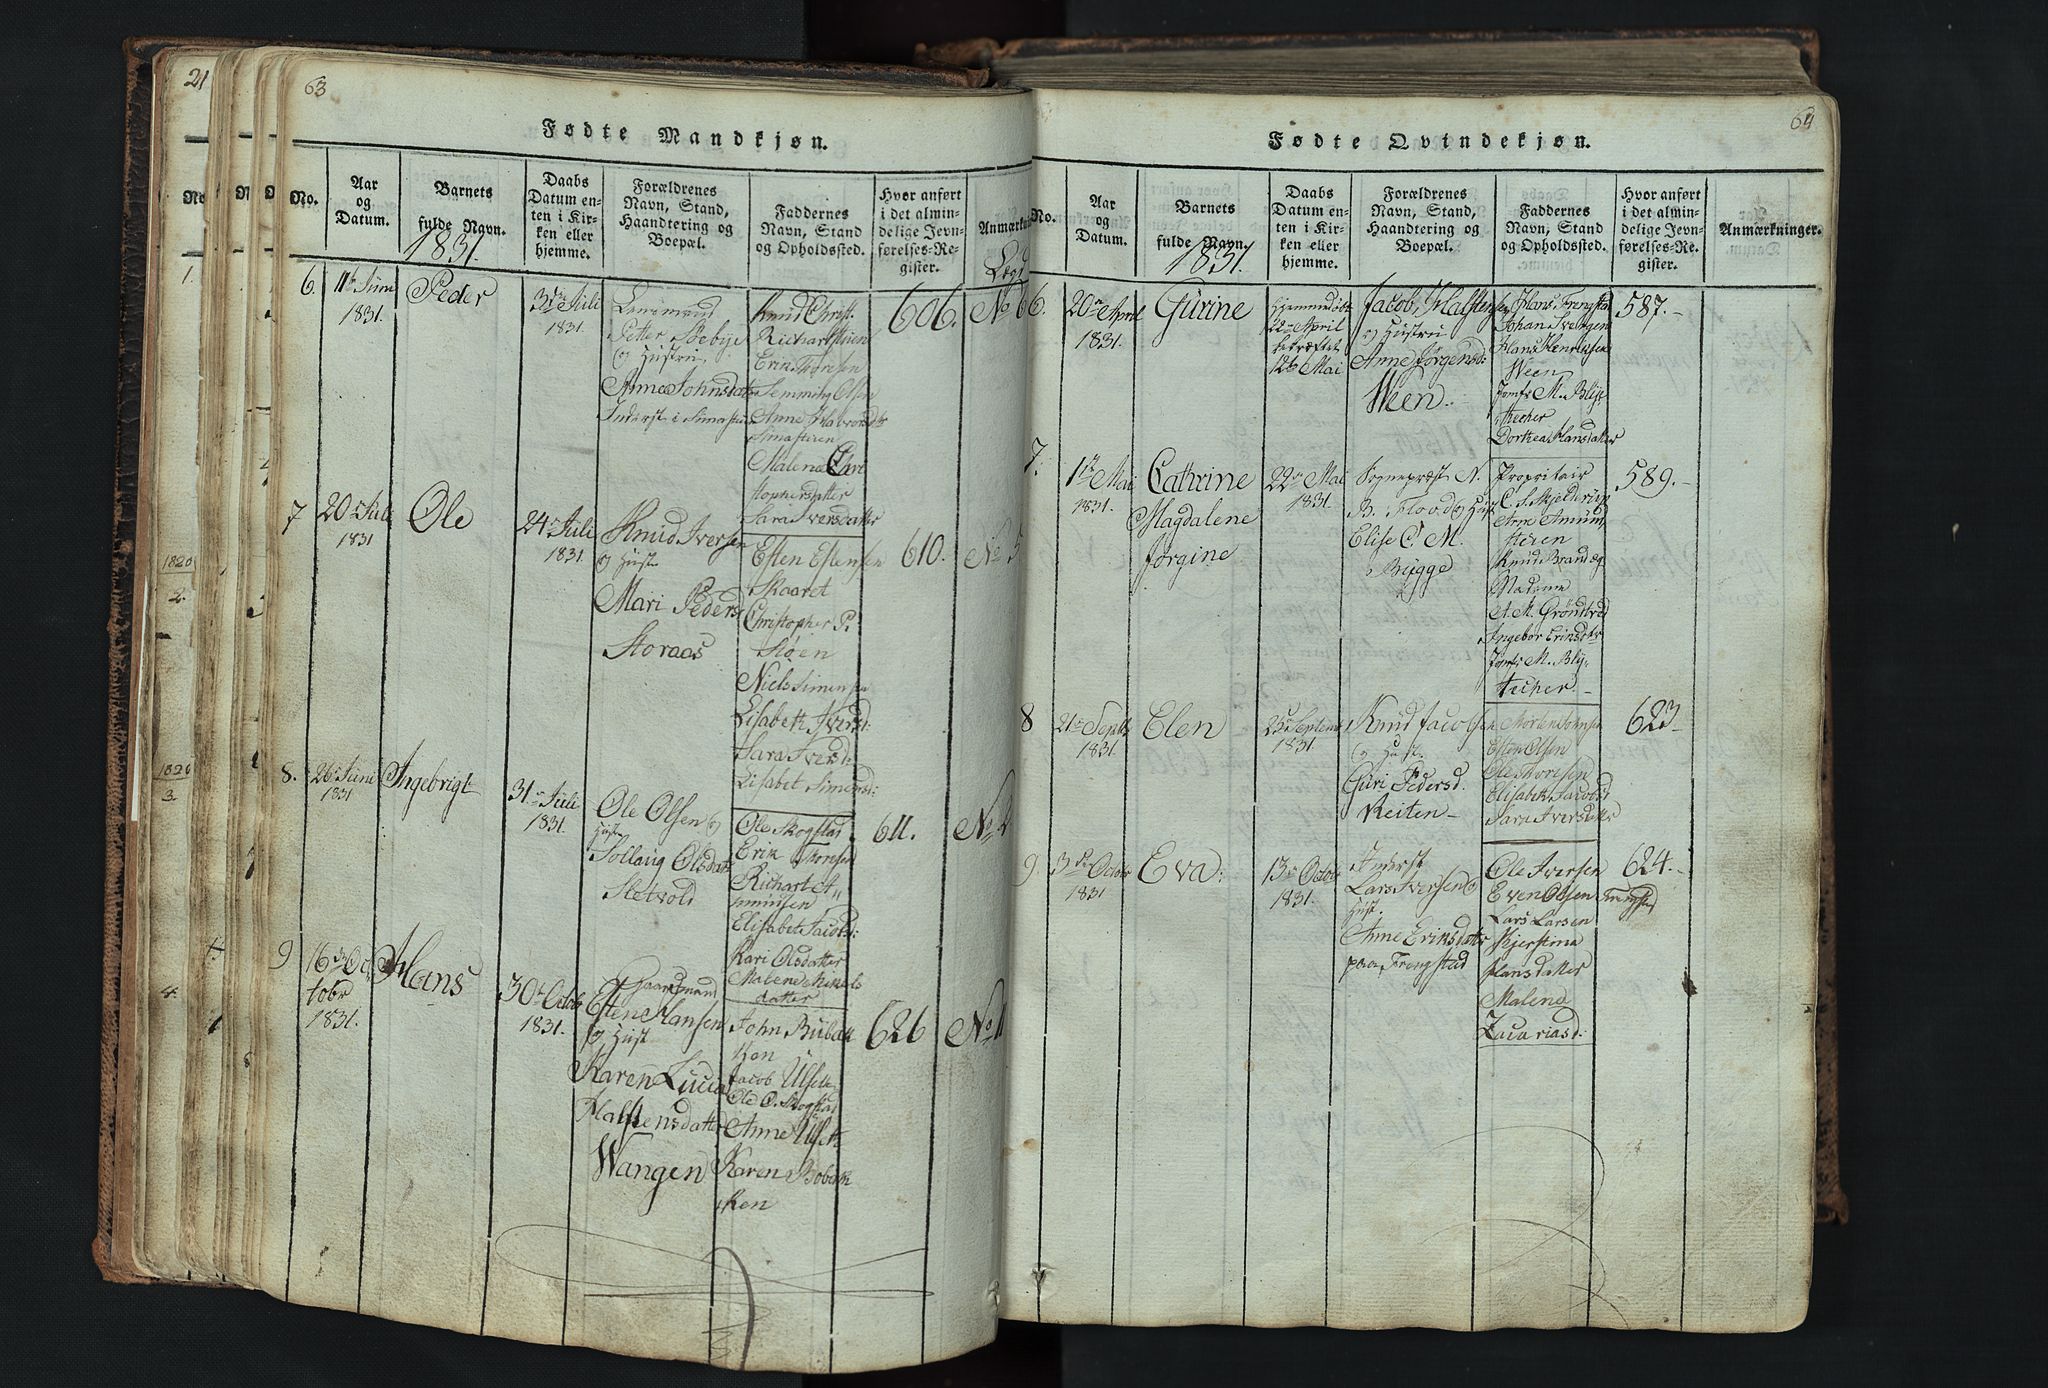 21
63
Fødte Mandkjøn.
No.
Aar
og
Datum.
Barnets
fulde Navn.
1831.
Daabs
Datum en-
ten i Kir-
ken eller
hjemme.
Forældrenes
Navn, Stand,
Haandtering og
Boepæl.
Faddernes
Navn, Stand
og Opholdssted.
Hvor anført
i det almin-
delige Jevn-
førelses-Re-
gister.
6.
11te Juni
1831.
Peder
3die Juli
1831.
Petter
og Hustru
Anne Johnsdatter
Inderst i
Knud Christ.
Erik Thoresen
Semming Olsen
Anne
Malene Chri
stophersdatter
Sara Iversdatter
606.
No 6
7
20de Juli
1831
Ole
24de Juli
1831.
Knud Iversen
og Hust.
Mari Peders
Storaas
Esten Estensen
Skaaret
Christopher P.
Støen
Niels Simensen
Lisabeth Iversd:
Sara Iversd:
Lisabet Simensd:
610.
No 5
8.
26de Juni
1831
Ingebrigt
31te Juli
1831.
Ole Olsen og
Hust.
Sollaug Olsdatter
Sletvold
Ole Skogstad
Erik Thoresen
Richart A
mundsen
Elisabet Jacobsd:
Kari Olsdatter
Malene Mikels
datter
611.
No 2
9
16de Oc
tobr
1831.
Hans
30te Octobr
1831.
Gaardmand
Esten Hansen
og Hust
Karen Lucia
Halstensdatter
Wangen
John Bubak
ken
Jacob Ulset
Ole O. Skogstad
Anne Ulset
Karen Bobak
ken
626
No 1
64
Fødte Qvindekjøn.
No.
Aar
og
Datum.
Barnets
fulde Navn.
1831.
Daabs
Datum en-
ten i Kir-
ken eller
hjemme.
Forældrenes
Navn, Stand,
Haandtering og
Boepæl.
Faddernes
Navn, Stand
og Opholdssted.
Hvor anført
i det almin-
delige Jevn-
førelses-Re-
gister.
Anmærkninger.
6.
20de April
1831.
Gurine
Hjemmedøbt
22de April
bekræftet
12te Mai
Jacob Halstensen
og Hustru
Anne Jørgensd:
Ween.
Hans Frengstad
Johan Svensen
Hans Henriksen
Ween
Jomfr M. Bly
thecher
Dorthea Hansdatter
587.-
7.
1ste Mai
1831.
Cathrine
Magdalene
Jørgine
22de Mai
1831.
Sognepræst N.
B. Flood og Hust
Elise C. M.
Brygge
Propritair
C. S. Skjelderup
Arne Amund
Knud Brandæg
Madame
A. M. Grøndtvad
Ingebor Eriksdtr
Jomfr M. Bly
thecher.
589.-
8
21de Septbr
1831.
Elen
25de Septembr
1831.
Knud Jacobsen
og Hust.
Guri Pedersd.
Reiten-
Morten Johnsen
Esten Olsen
Ole Thoresen
Elisabeth Jacobsd
Sara Iversdatter
623-
9.
3die Octobr
1831
Eva:
13de Octobr
1831.
Inderst
Lars Iversen og
Hust.
Anne Eriksdatter
paa Frengstad
Ole Iversen
Even Olsen Frengstad
Lars Larsen
Kjerstina
Hansdatter
Malena
Zacariasd:
624.-